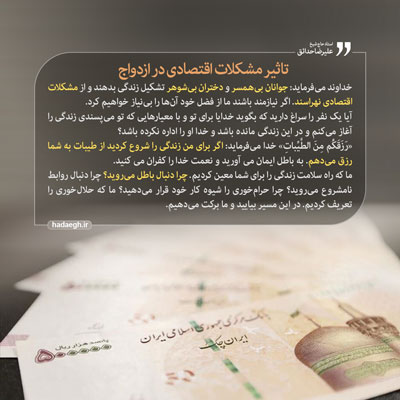 استاد حاج شیخ
علیرضا حدائق
تاثیر مشکلات اقتصادی در ازدواج
خداوند می‌فرماید: جوانان بی‌همسر و دختران بی‌شوهر تشکیل زندگی بدهند و از مشکلات
اقتصادی نهراسند. اگر نیازمند باشند ما از فضل خود آن‌ها را بی‌نیاز خواهیم کرد.
آیا یک نفر را سراغ دارید که بگوید خدایا برای تو و با معیارهایی که تو می‌پسندی زندگی را
آغاز می‌کنم و در این زندگی مانده باشد و خدا او را اداره نکرده باشد؟
«رَزَقَکُم مِنَ الطَّیِّباتِ» خدا می‌فرماید: اگر برای من زندگی را شروع کردید از طیبات به شما
رزق می‌دهم. به باطل ایمان می آورید و نعمت خدا را کفران می کنید.
ما که راه سلامت زندگی را برای شما معین کردیم. چرا دنبال باطل می‌روید؟ چرا دنبال روابط
نامشروع می‌روید؟ چرا حرام‌خوری را شیوه کار خود قرار می‌دهید؟ ما که حلال‌خوری را
تعریف کردیم. در این مسیر بیایید و ما برکت می‌دهیم.
hadaegh.ir
بانک مرکزی جمهوری اسلامی ایران
ایران چک
پانصد هزار ریال
۵۰۰۰۰۰